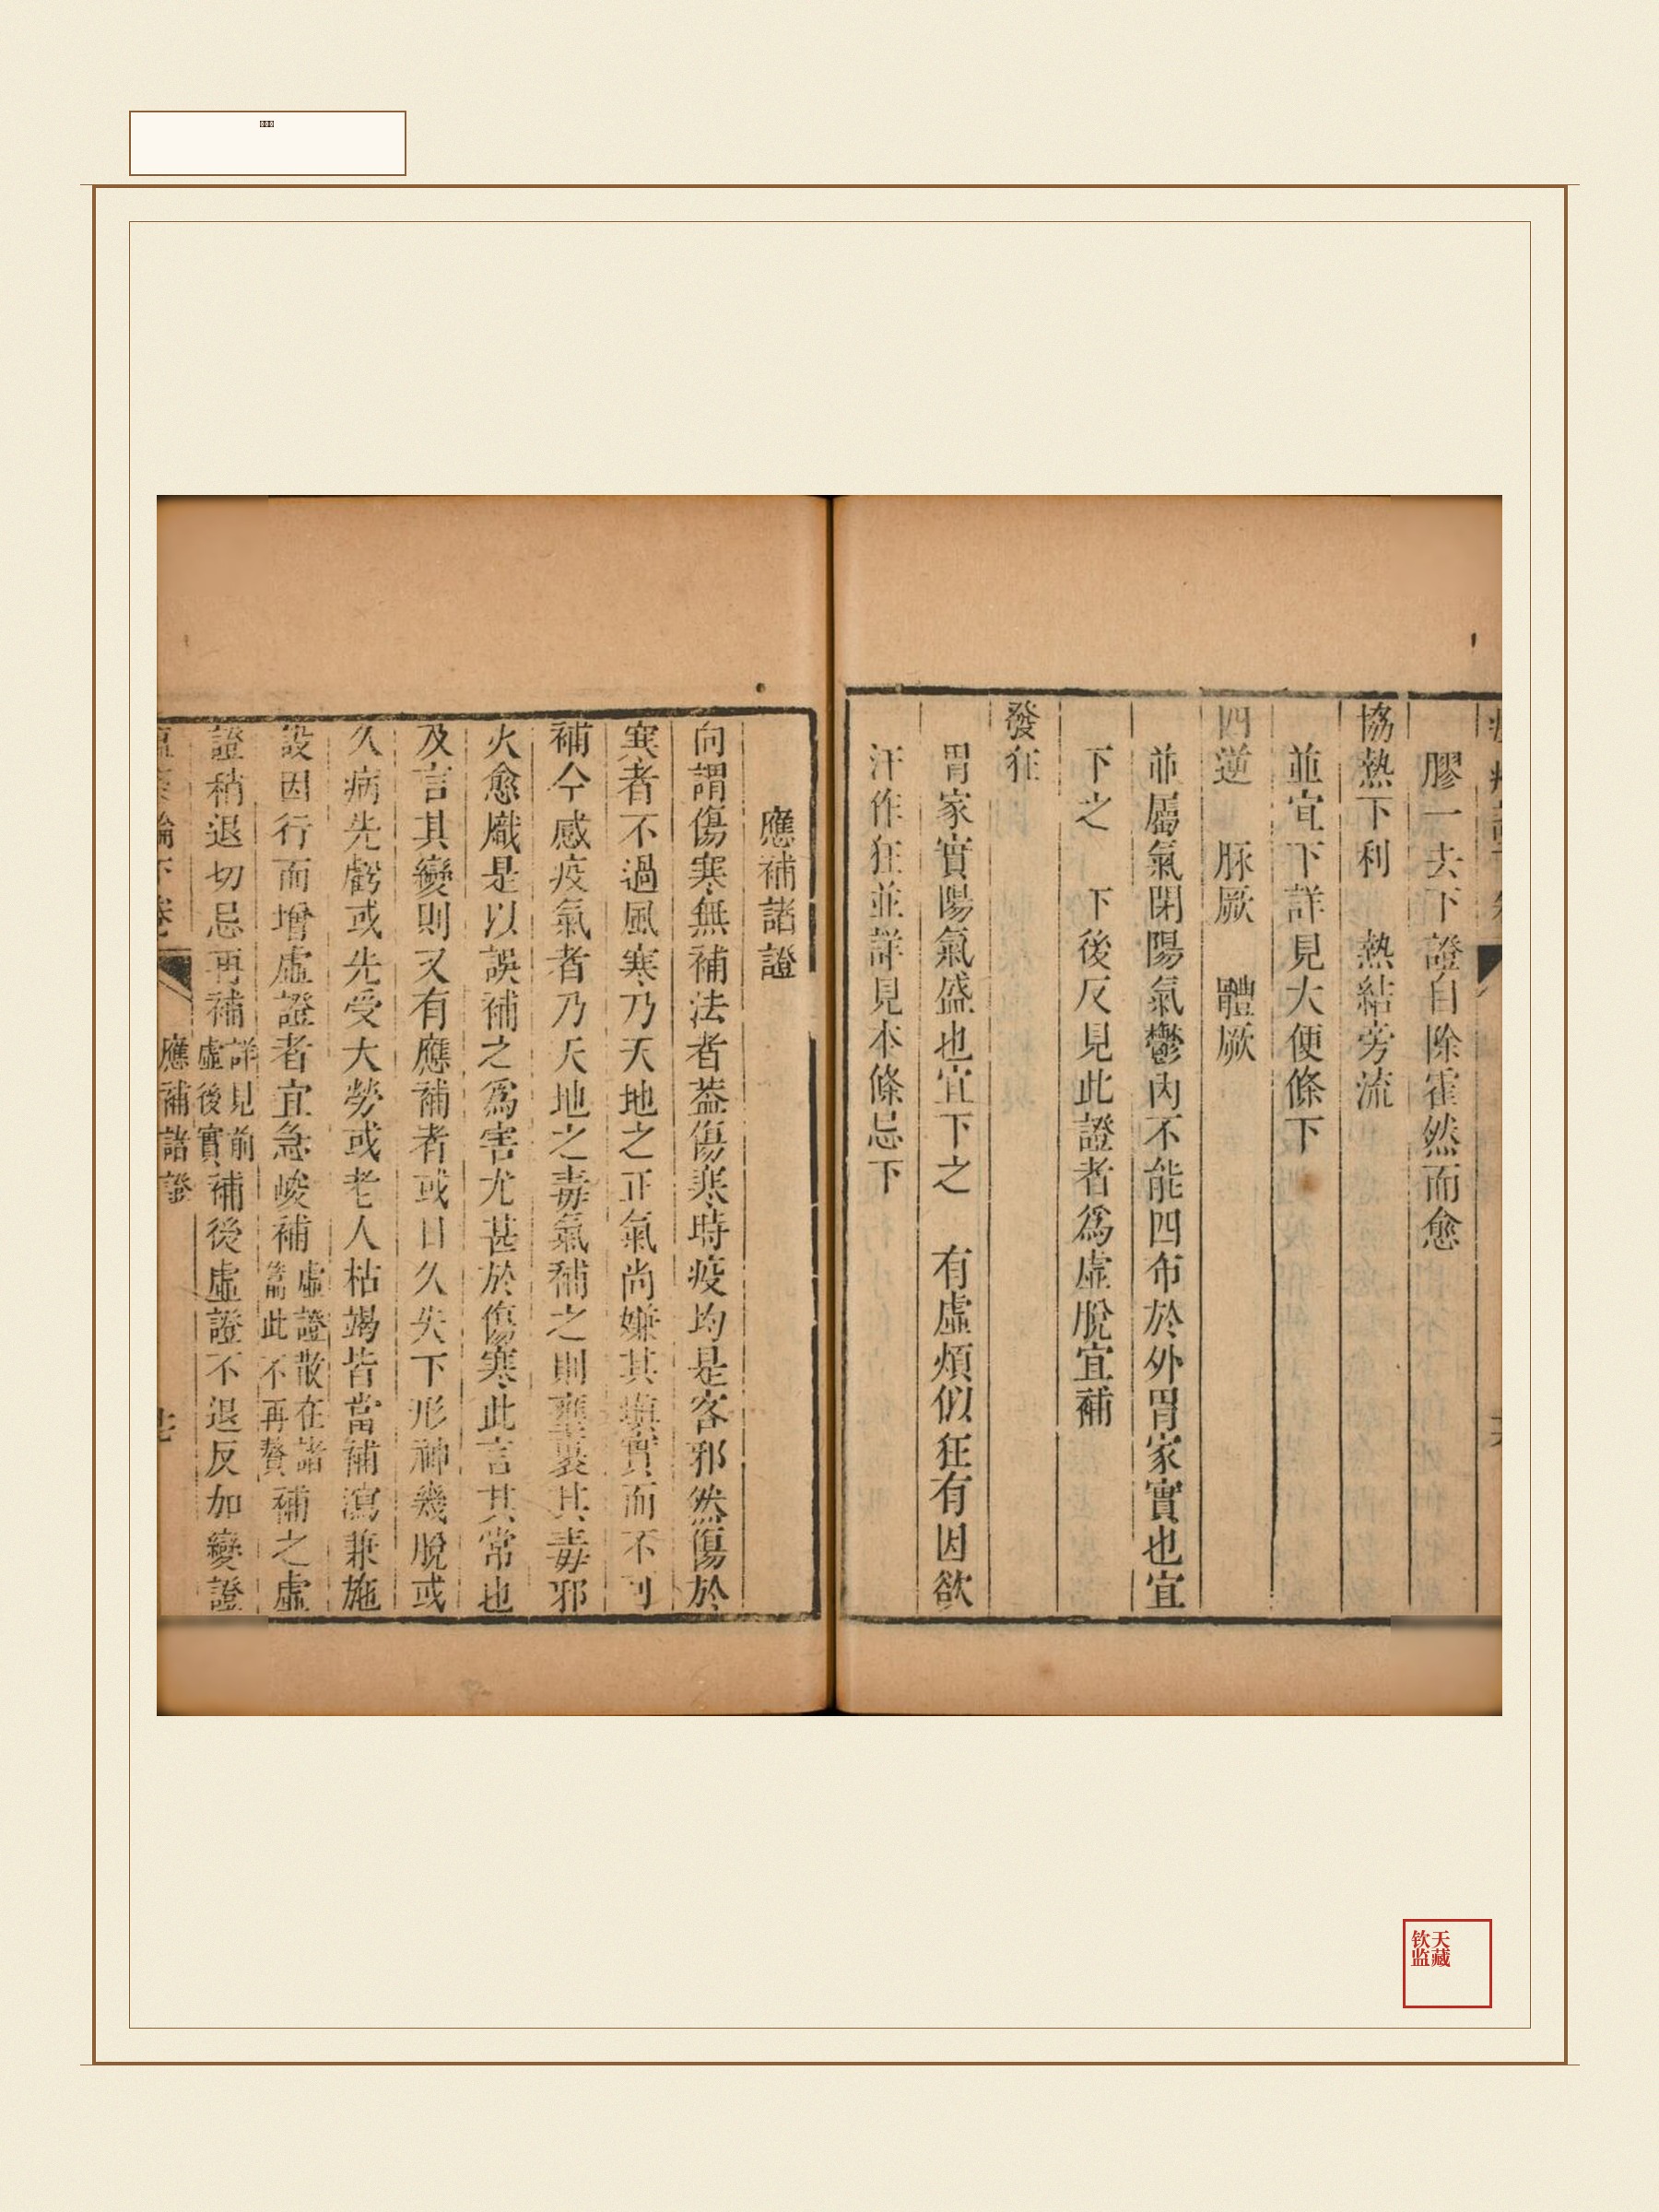 膠一去下證自除霍然而愈
協熱下利 熱結旁流
並宜下詳見大便條下
四逆 脉厥 體厥
並屬氣閉陽氣鬱内不能四布於外胃家實也宜
下之 下後反見此證者爲虛脫宜補
發狂
胃家實陽氣盛也宜下之 有虛煩似狂有因欲
汗作狂並詳見本條忌下
應補諸證
向謂傷寒無補法者葢傷寒時疫均是客邪然傷於
寒者不過風寒乃天地之正氣尚嫌其填實而不可
補今感疫氣者乃天地之毒氣補之則壅裹其毒邪
火愈熾是以誤補之爲害尤甚於傷寒此言其常也
及言其變則又有應補者或日久失下形神幾脫或
久病先虧或先受大勞或老人枯竭皆當補瀉兼施
設因行而增虛證者宜急峻補虛證散在諸篇此不再贅補之虛
證稍退切忌再補詳見前虛後實補後虛證不退反加變證
應補諸證
钦天
监藏